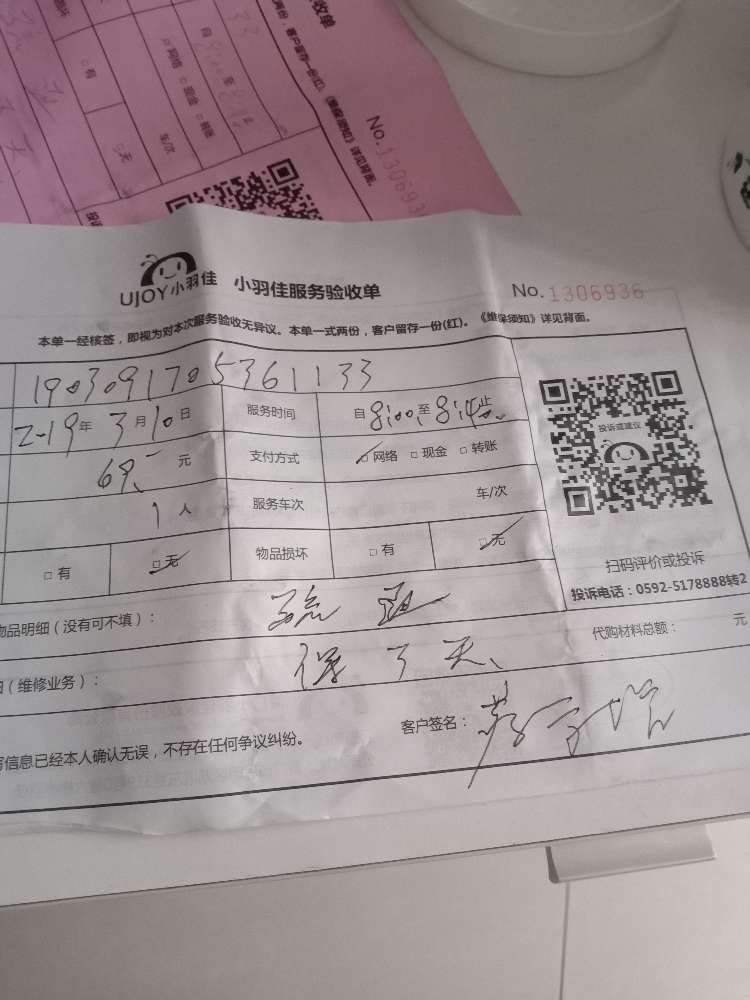 收单
两份，客户留存一份(红)。《维保须知》详见背面。
自8:00至
网络 □ 现金 □ 转账
车/次
□ 有
□ 无
No.130693
UJOY小羽佳 小羽佳服务验收单 No.1306936
本单一经核签，即视为对本次服务验收无异议。本单一式两份，客户留存一份(红)。《维保须知》详见背面。
1903091705361133
2-19年3月10日 服务时间 自8:00至8:40止
69、元 支付方式 □网络 □ 现金 □ 转账
1人 服务车次 车/次
□ 有 □无 物品损坏 □ 有 □无
投诉或建议
扫码评价或投诉
投诉电话：0592-5178888转2
物品明细（没有可不填）：
代购材料总额： 元
（维修业务）： 保了天、
客户签名：
写信息已经本人确认无误，不存在任何争议纠纷。